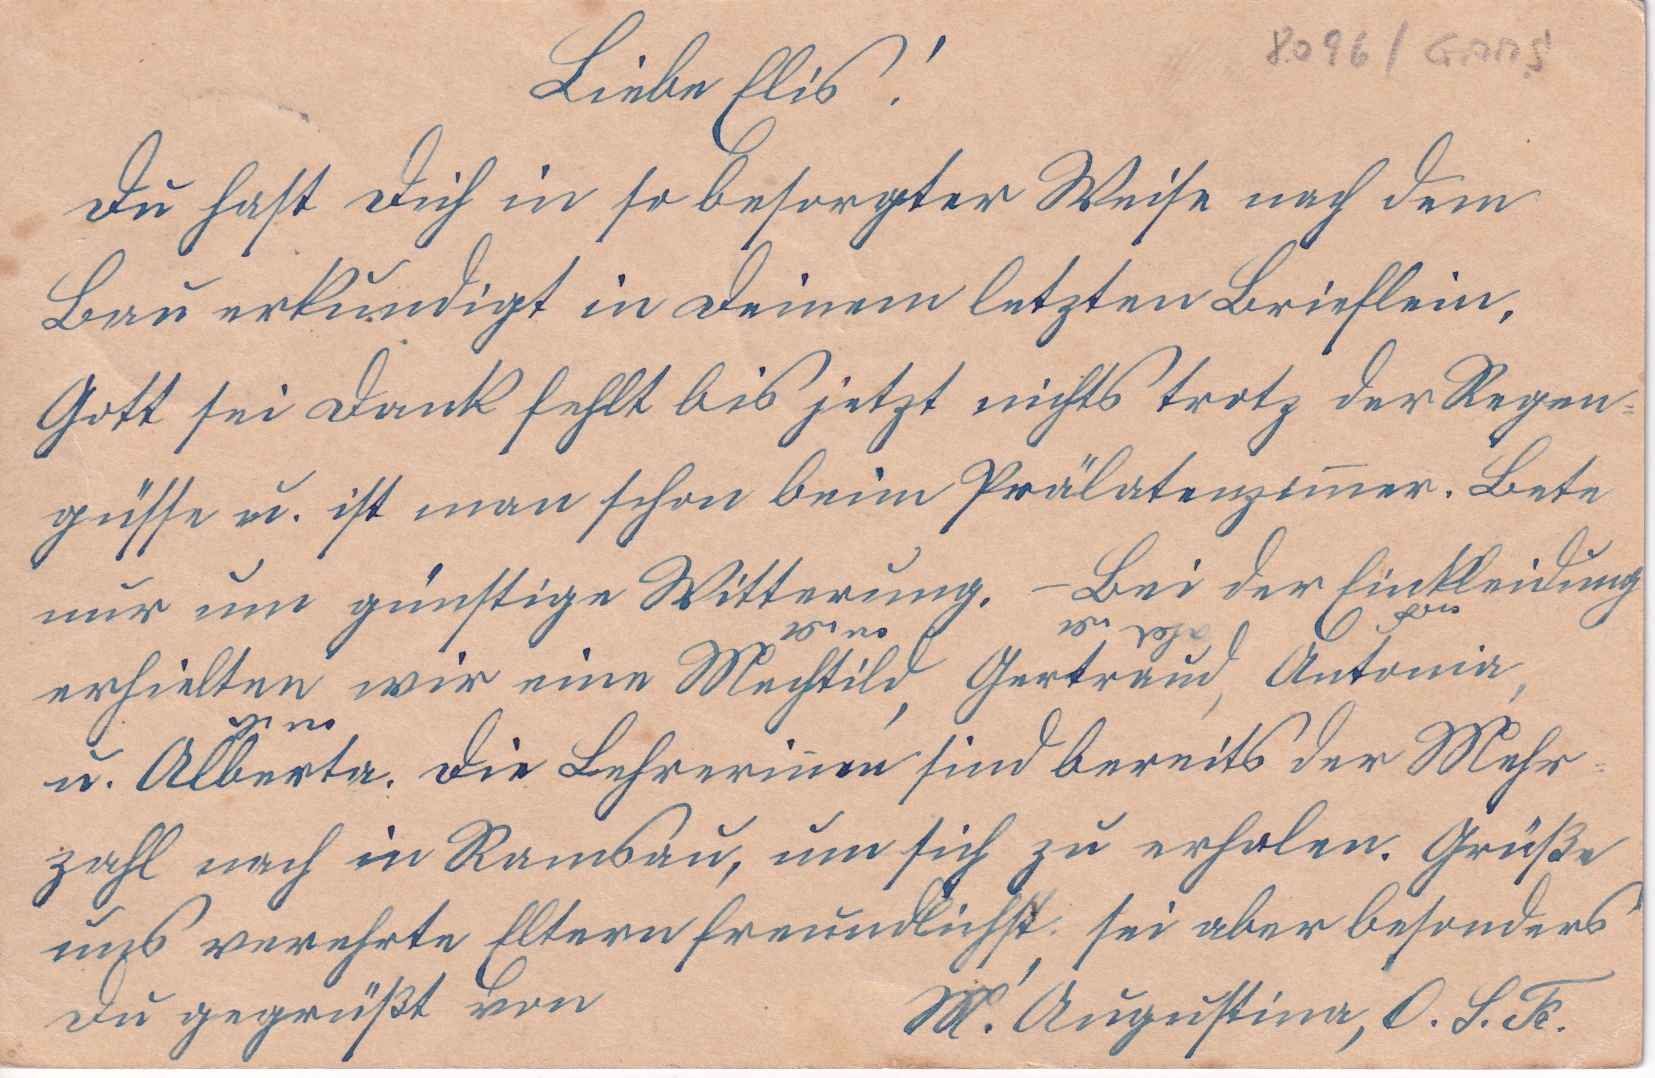 8096 / Gars
Liebe Elis!
Du hast Dich in so besorgter Weise nach dem
Bau erkundigt in Deinem letzten Brieflein.
Gott sei Dank fehlt bis jetzt nichts trotz der Regen=
güsse u. ist man schon beim Prälatenzim̅er. Bete
nur um günstige Witterung. – Bei der Einkleidung
erhielten wir eine Mechtild, Gertraud, Antonia,
u. Alberta. Die Lehrerin̅en sind bereits der Mehr=
zahl nach in Ramsau, um sich zu erholen. Grüße
uns verehrte Eltern freundlichst, sei aber besonders
Du gegrüßt von
M. Augustina, O. S. Fr.